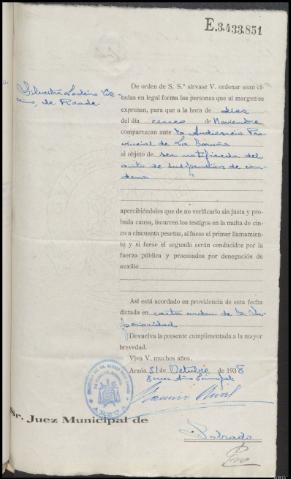 E.3.433.851
De orden de S. S.ª sírvase V. ordenar sean ci-
tadas en legal forma las personas que al margen se
expresan, para que a la hora de diez
del día cinco de Noviembre
comparezcan ante la Audiencia Pro-
vincial de La Coruña
al objeto de ser notificado del
auto de suspensión de con-
dena
apercibiéndoles que de no verificarlo sin justa y pro-
bada causa, incurren los testigos en la multa de cin-
co a cincuenta pesetas, al fuese el primer llamamien-
to y si fuese el segundo serán conducidos por la
fuerza pública y procesados por denegación de
auxilio
Así está acordado en providencia de esta fecha
dictada en carta orden de la Su-
perioridad
Devuelva la presente cumplimentada a la mayor
brevedad.
Viva V. muchos años.
31 de Octubre de 1938
Sr. Juez Municipal de